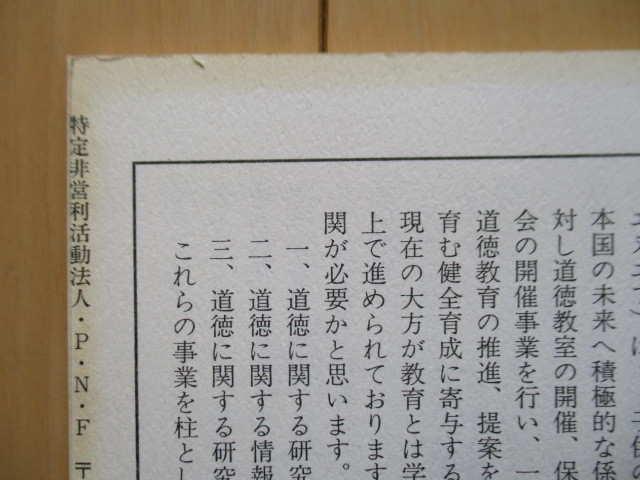 本国の未来へ積極的な係
対し道徳教室の開催、保
会の開催事業を行い、一
道徳教育の推進、提案を
育む健全育成に寄与する
現在の大方が教育とは学
上で進められております
関が必要かと思います。
一、道徳に関する研究
二、道徳に関する情報
三、道徳に関する研究
これらの事業を柱とし
特定非営利活動法人・P・N・F 〒